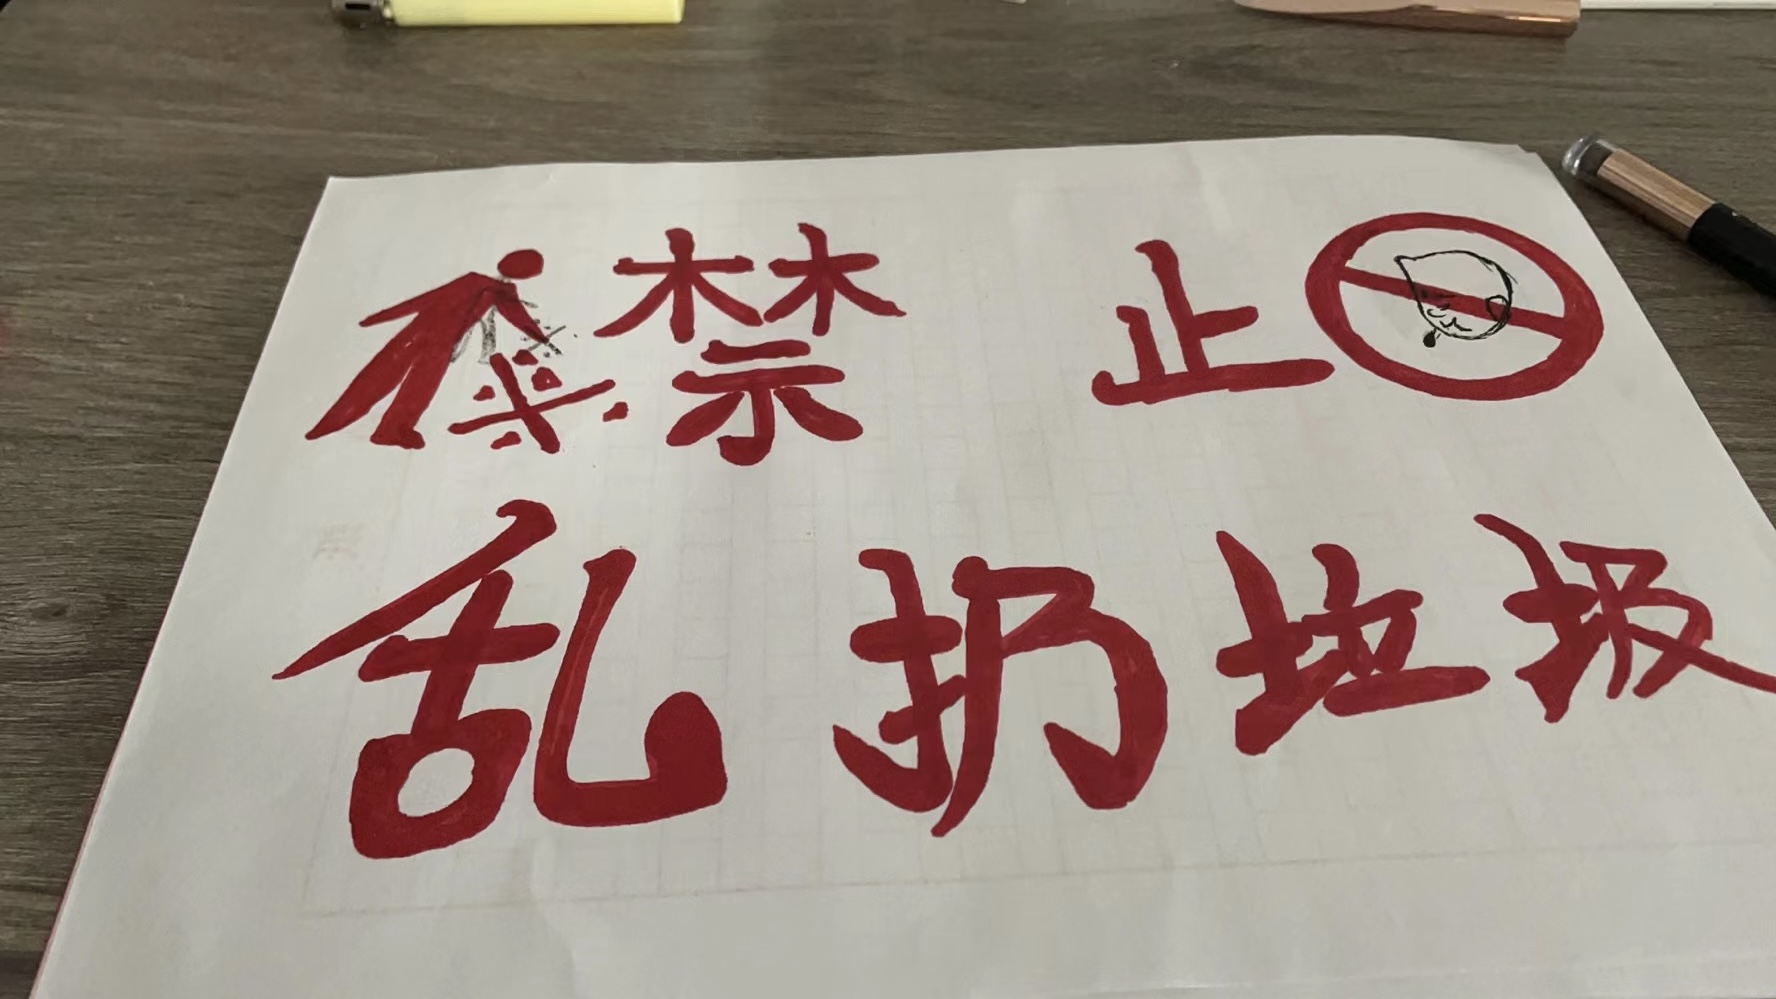 禁止
乱扔垃圾